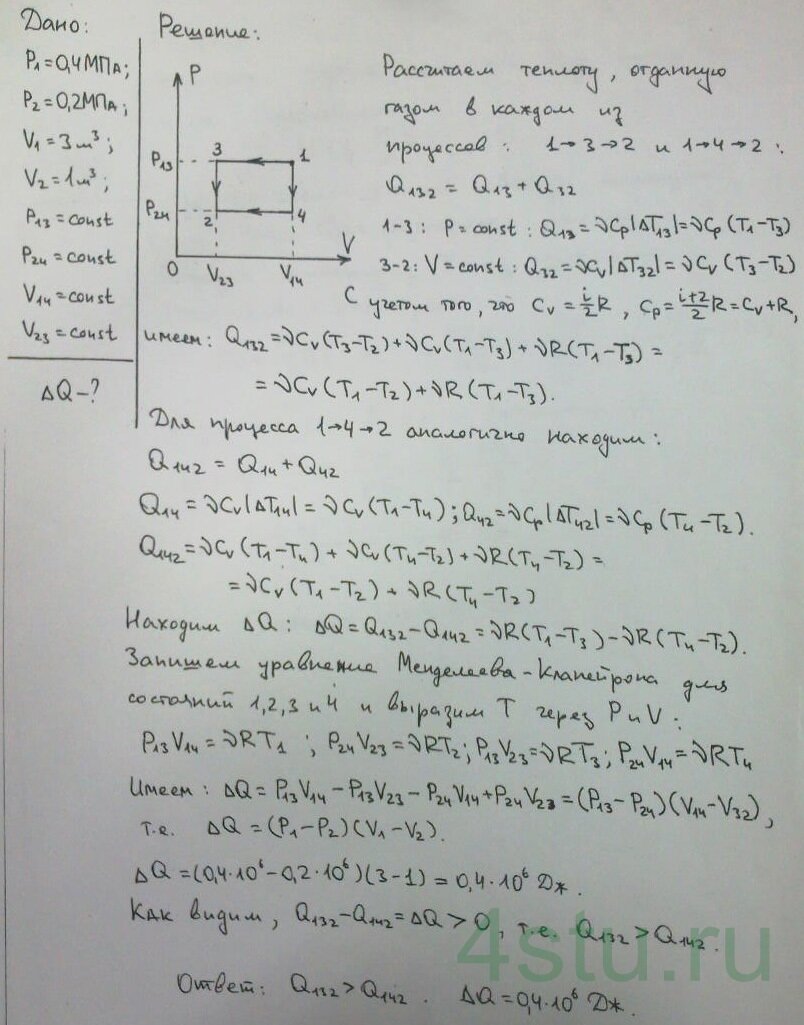 Дано:
P₁=0,4МПа;
P₂=0,2МПа;
V₁=3м³;
V₂=1м³;
P₁₃=const
P₂₄=const
V₁₄=const
V₂₃=const
ΔQ-?
Решение:
P
P₁₃
P₂₄
3
1
2
4
0
V₂₃
V₁₄
V
Рассчитаем теплоту, отданную
газом в каждом из
процессов: 1→3→2 и 1→4→2:
Q₁₃₂ = Q₁₃ + Q₃₂
1-3: P=const: Q₁₃=νCp|ΔT₁₃|=νCp(T₁-T₃)
3-2: V=const: Q₃₂=νCv|ΔT₃₂|=νCv(T₃-T₂)
С учетом того, что Cv=i/2R, Cp=i+2/2R=Cv+R,
имеем: Q₁₃₂=νCv(T₃-T₂)+νCv(T₁-T₃)+νR(T₁-T₃)=
=νCv(T₁-T₂)+νR(T₁-T₃).
Для процесса 1→4→2 аналогично находим:
Q₁₄₂ = Q₁₄+Q₄₂
Q₁₄=νCv|ΔT₁₄|=νCv(T₁-T₄); Q₄₂=νCp|ΔT₄₂|=νCp(T₄-T₂).
Q₁₄₂=νCv(T₁-T₄)+νCv(T₄-T₂)+νR(T₄-T₂)=
=νCv(T₁-T₂)+νR(T₄-T₂)
Находим ΔQ: ΔQ=Q₁₃₂-Q₁₄₂=νR(T₁-T₃)-νR(T₄-T₂).
Запишем уравнение Менделеева-Клапейрона для
состояний 1,2,3 и 4 и выразим T через P и V:
P₁₃V₁₄=νRT₁; P₂₄V₂₃=νRT₂; P₁₃V₂₃=νRT₃; P₂₄V₁₄=νRT₄
Имеем: ΔQ=P₁₃V₁₄-P₁₃V₂₃-P₂₄V₁₄+P₂₄V₂₃=(P₁₃-P₂₄)(V₁₄-V₃₂),
т.е. ΔQ=(P₁-P₂)(V₁-V₂).
ΔQ=(0,4·10⁶-0,2·10⁶)(3-1)=0,4·10⁶ Дж.
Как видим, Q₁₃₂-Q₁₄₂=ΔQ>0, т.е. Q₁₃₂>Q₁₄₂.
4stu.ru
Ответ: Q₁₃₂>Q₁₄₂. ΔQ=0,4·10⁶ Дж.